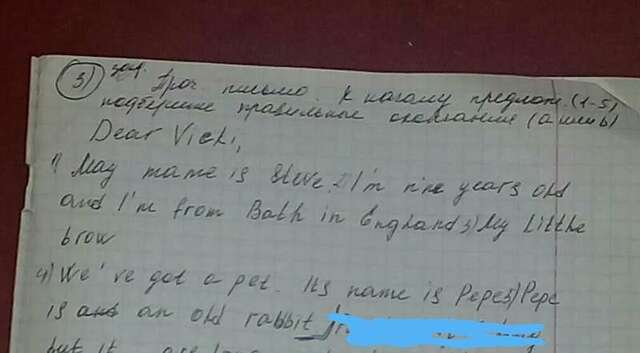 3) зад. Проч. письмо. К началу предлож. (1-5)
подберите правильное окончание (а или b)
Dear Vicki,
1) May mame is Steve. 2) I'm nine years old
and I'm from Bath in England 3) My Little
brow
4) We've got a pet. Its name is Pepe 5) Pepe
is an old rabbit
but it are